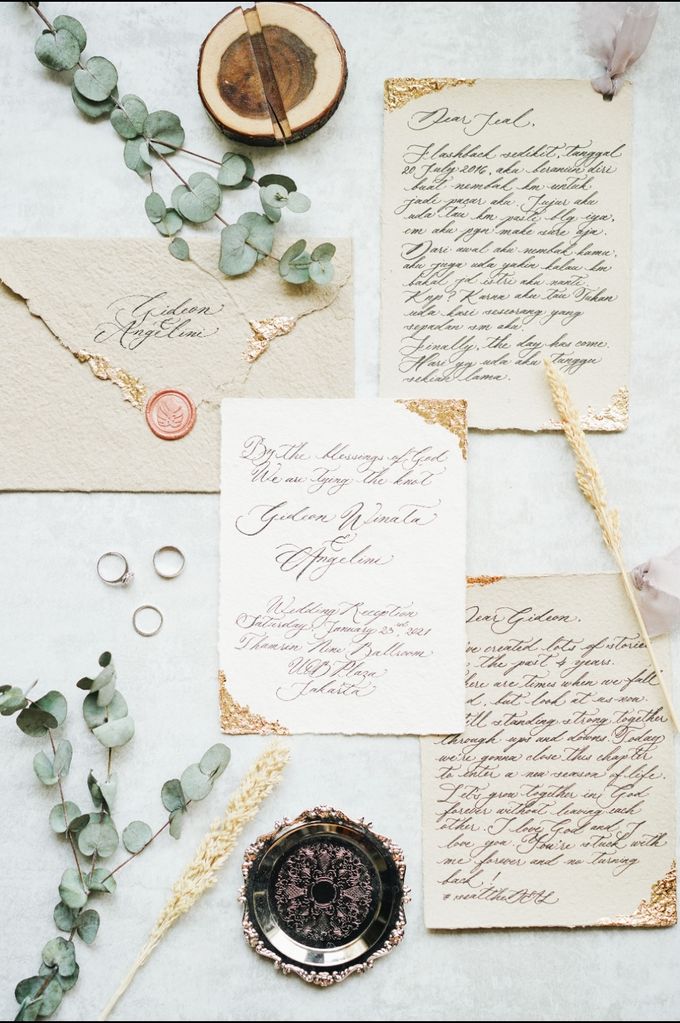 Gideon
&
Angelini
Dear Jeal,
Flashback sedikit, tanggal
20 July 2016, aku beranien diri
buat nembak km untuk
jade pacar aku. Jujur aku
uda tau km pasti blg iya,
cm aku pgn make sure aja.
Dari awal aku nembak kamu,
aku juga uda yakin kalau km
bakal jd istri aku nanti.
Knp? Karna aku tau Tuhan
uda kasi seseorang yang
sepadan sm aku.
Finally, the day has come.
Hari yg uda aku tunggu
sekian lama.
By the blessings of God
We are tying the knot
Gideon Winata
&
Angelini
Wedding Reception
Saturday, January 23rd, 2021
Thamrin Nine Ballroom
UOB Plaza
Jakarta
Dear Gideon,
created lots of stories
the past 4 years.
There are times when we fall
but look at us now.
still standing strong together
through ups and downs. Today
we're gonna close this chapter
to enter a new season of life.
Let's grow together in God
forever without leaving each
other. I love God and I
love you. You're stuck with
me forever and no turning
back!